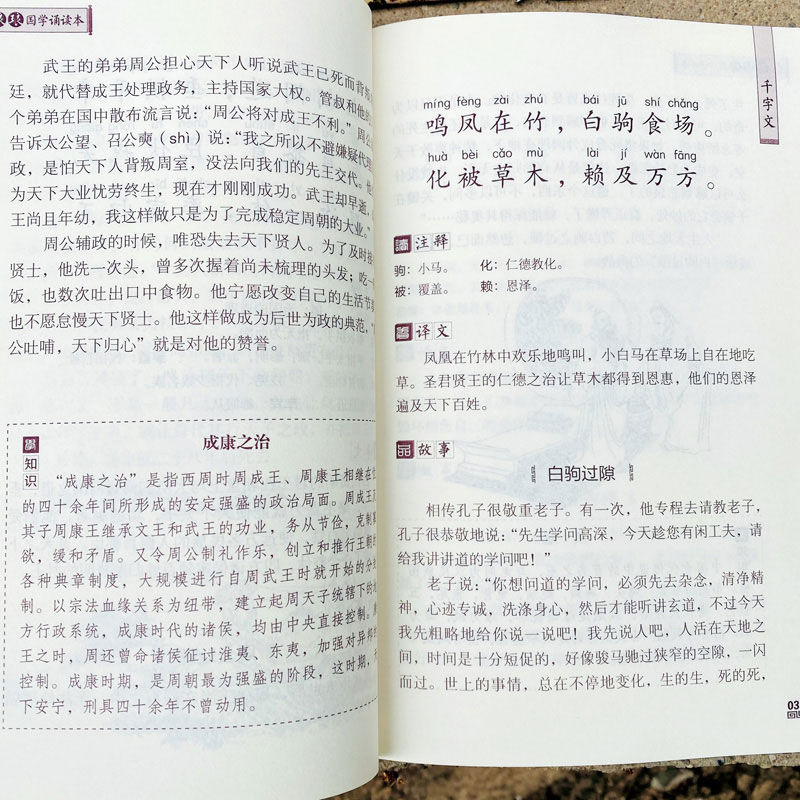 国学诵读本
武王的弟弟周公担心天下人听说武王已死而背叛
廷，就代替成王处理政务，主持国家大权。管叔和他的
个弟弟在国中散布流言说：“周公将对成王不利。”周公
告诉太公望、召公奭（shì）说：“我之所以不避嫌疑代理
政，是怕天下人背叛周室，没法向我们的先王交代。他
为天下大业忧劳终生，现在才刚刚成功。武王却早逝，
王尚且年幼，我这样做只是为了完成稳定周朝的大业。”
周公辅政的时候，唯恐失去天下贤人。为了及时接
贤士，他洗一次头，曾多次握着尚未梳理的头发；吃一
饭，也数次吐出口中食物。他宁愿改变自己的生活节
也不愿怠慢天下贤士。他这样做成为后世为政的典范，“
公吐哺，天下归心”就是对他的赞誉。
知识
成康之治
“成康之治”是指西周时周成王、周康王相继在位
的四十余年间所形成的安定强盛的政治局面。周成王及
其子周康王继承文王和武王的功业，务从节俭，克制
欲，缓和矛盾。又令周公制礼作乐，创立和推行王朝的
各种典章制度，大规模进行自周武王时就开始的分
制。以宗法血缘关系为纽带，建立起周天子统辖下的
方行政系统，成康时代的诸侯，均由中央直接控制。
王之时，周还曾命诸侯征讨淮夷、东夷，加强对异
控制。成康时期，是周朝最为强盛的阶段，这时期，
下安宁，刑具四十余年不曾动用。
千字文
míng fèng zài zhú bái jū shí chǎng
鸣凤在竹，白驹食场。
huà bèi cǎo mù lài jí wàn fāng
化被草木，赖及万方。
注释
驹：小马。 化：仁德教化。
被：覆盖。 赖：恩泽。
译文
凤凰在竹林中欢乐地鸣叫，小白马在草场上自在地吃
草。圣君贤王的仁德之治让草木都得到恩惠，他们的恩泽
遍及天下百姓。
故事
白驹过隙
相传孔子很敬重老子。有一次，他专程去请教老子，
孔子很恭敬地说：“先生学问高深，今天趁您有闲工夫，请
给我讲讲道的学问吧！”
老子说：“你想问道的学问，必须先去杂念，清净精
神，心迹专诚，洗涤身心，然后才能听讲玄道，不过今天
我先粗略地给你说一说吧！我先说人吧，人活在天地之
间，时间是十分短促的，好像骏马驰过狭窄的空隙，一闪
而过。世上的事情，总在不停地变化，生的生，死的死，
03